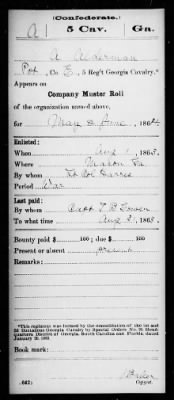 (Confederate.)
A 5 Cav. Ga.
A Alderman
Pvt, Co. E, 5 Reg't Georgia Cavalry.*
Appears on
Company Muster Roll
of the organization named above,
for May & June, 1864.
Enlisted:
When Aug 1, 1863.
Where Macon Ga
By whom Lt Col
Period War
Last paid:
By whom Capt T B
To what time Aug 3, 1863.
Bounty paid $ 100; due $ 100
Present or absent present
Remarks:
*This regiment was formed by the consolidation of the 1st and 2d Battalions Georgia Cavalry by Special Orders No.
quarters District of Georgia, South Carolina and Florida, dated
January 20, 1863.
Book mark:
(642)
Copyist.